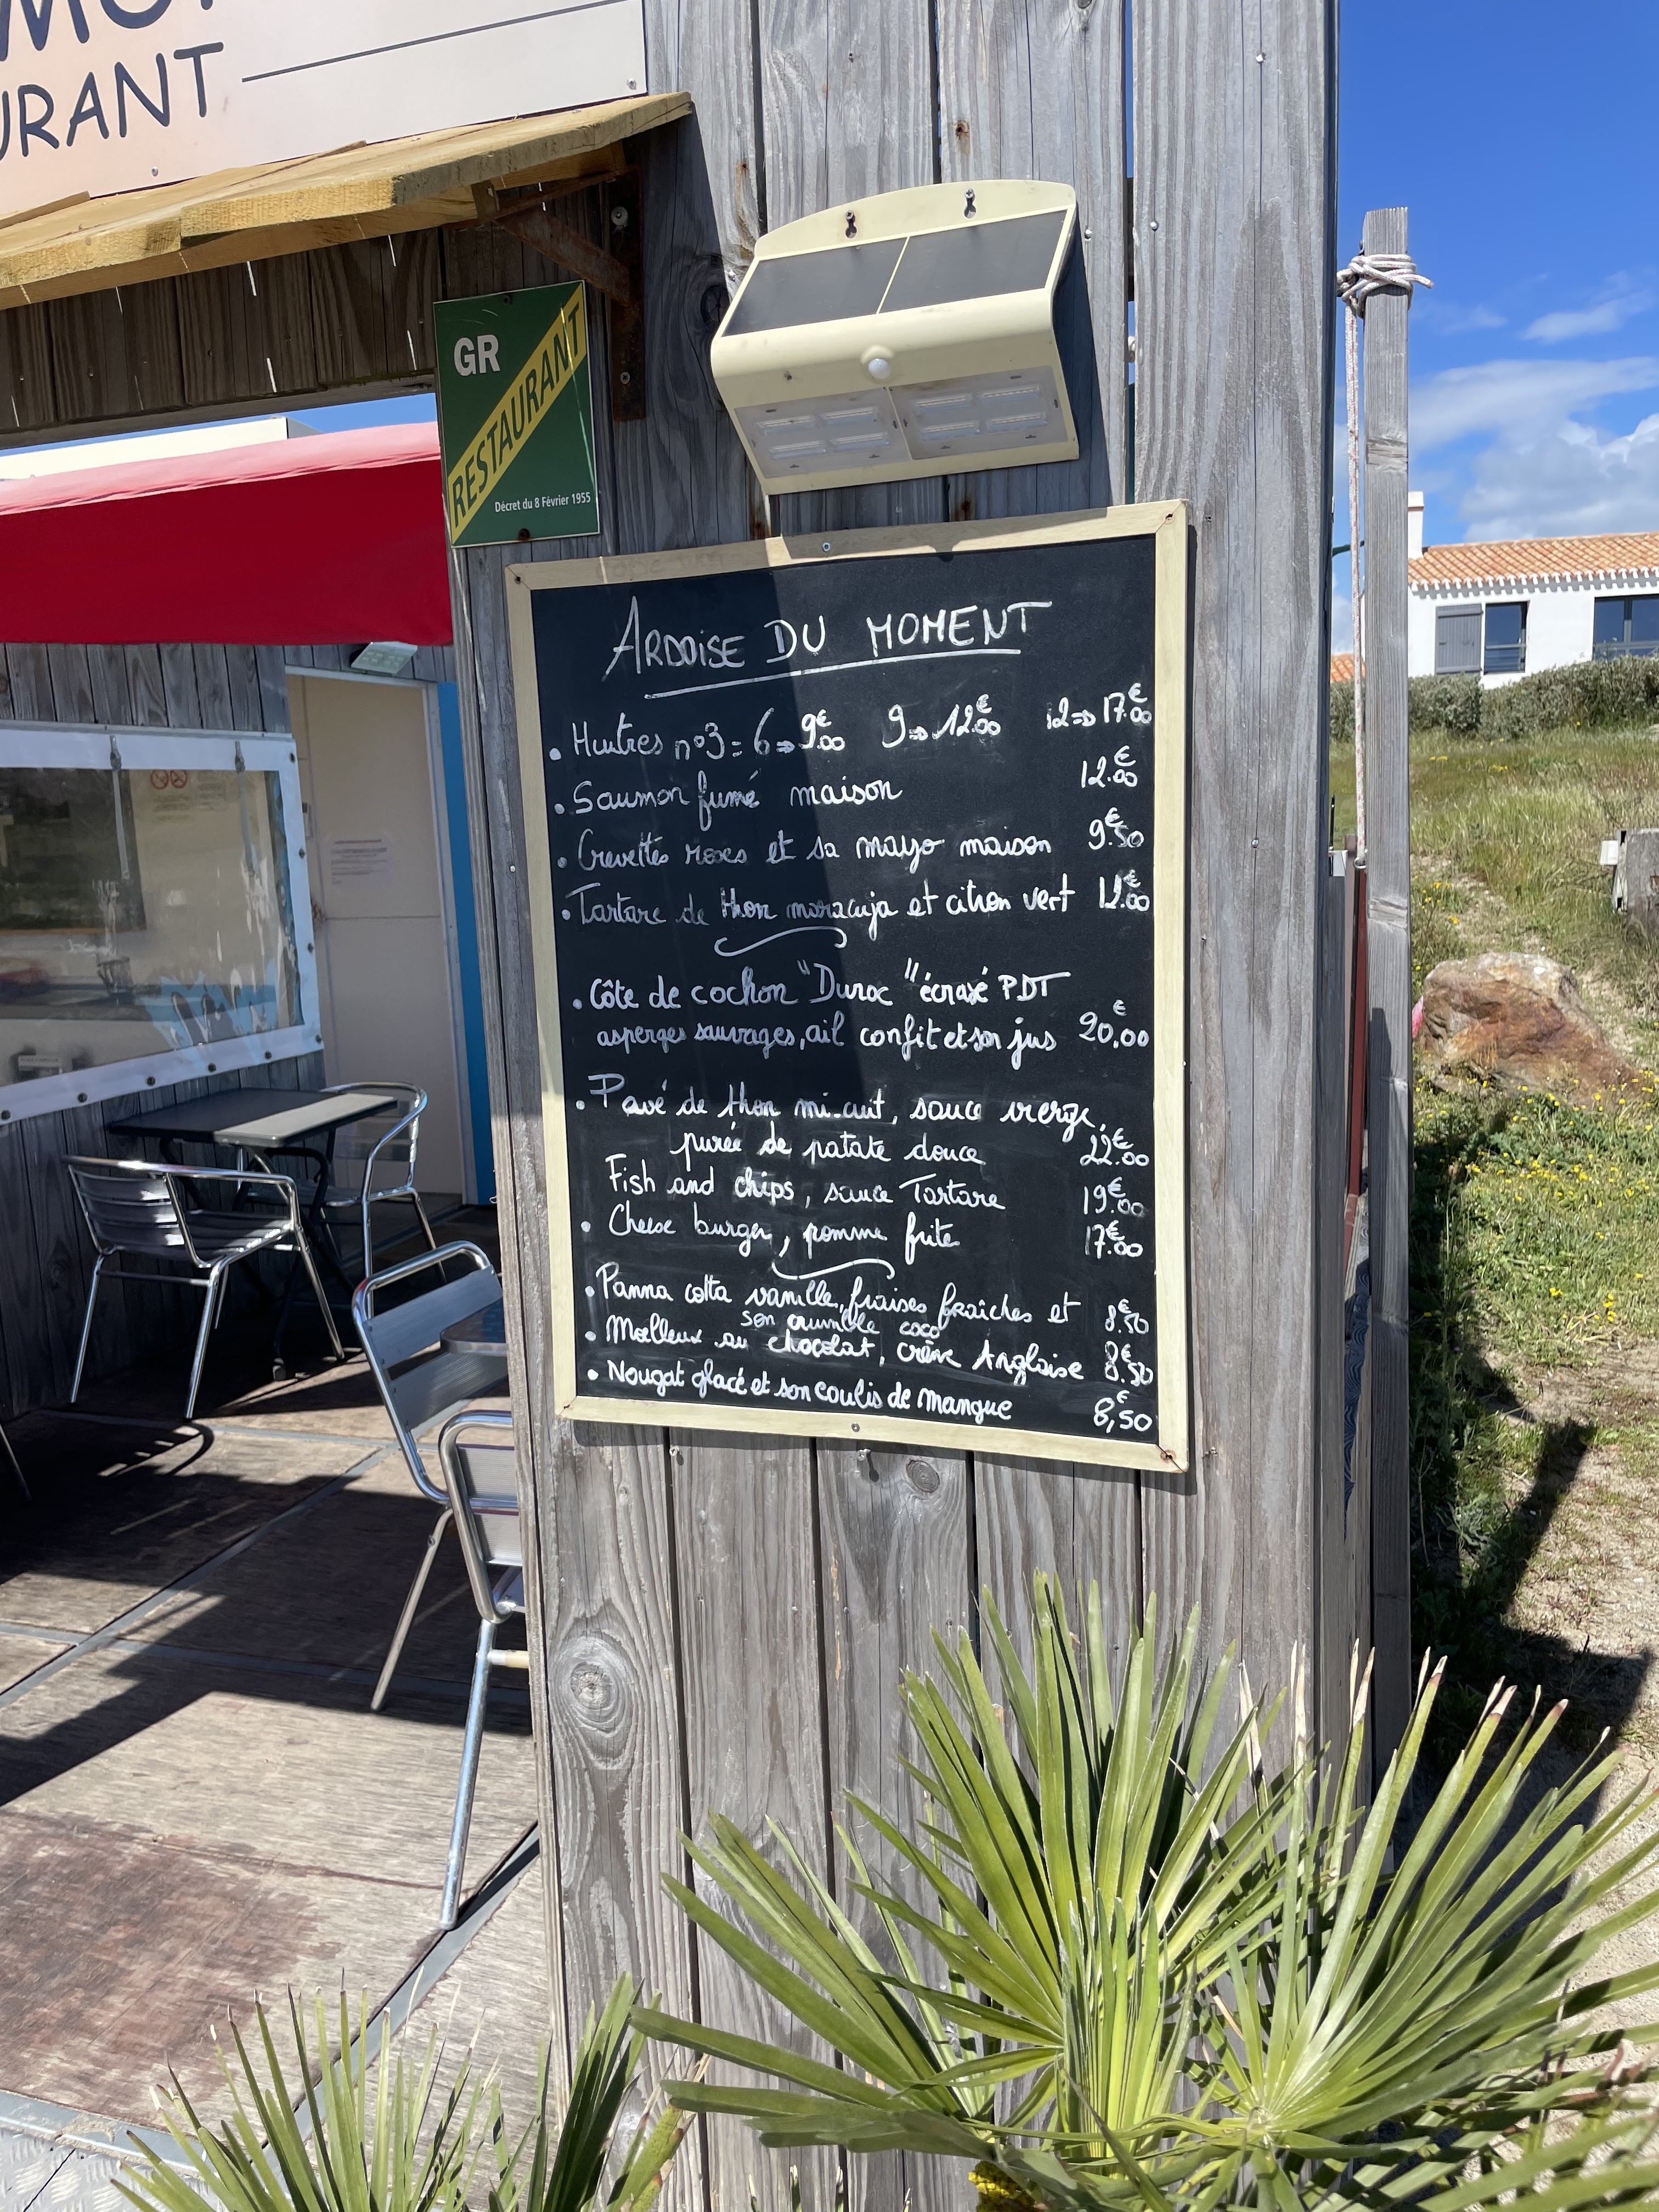 URANT
GR
RESTAURANT
Décret du 8 Février 1955
ARDOISE DU MOMENT
• Huitres n°3 = 6 => 9€00 9 => 12€00 12 => 17€00
• Saumon fumé maison 12€00
• Crevettes roses et sa mayo maison 9€50
• Tartare de thon maracuja et citron vert 12€00
• Côte de cochon "Duroc" écrasé PDT
asperges sauvages, ail confit et son jus 20,00€
• Pavé de thon mi-cuit, sauce vierge,
purée de patate douce 22€00
Fish and chips, sauce Tartare 19€00
• Cheese burger, pomme frite 17€00
• Panna cotta vanille, fraises fraîches et 8€50
son crumble coco
• Moelleux au chocolat, crème Anglaise 8€50
• Nougat glacé et son coulis de mangue 8,50€